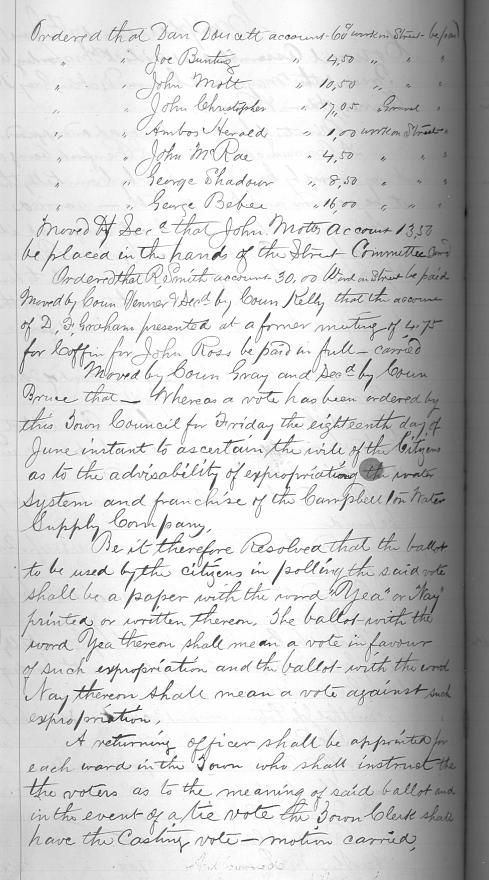 Ordered that Dan Doucett account 60 work on Street be paid
" " Joe Bunting " 4,50 " " "
" " John Mott " 10,50 " " "
" " John Christopher " 17,05 " Gravel "
" " Ambos Herald " 1,00 work on Street "
" " John McRae " 4,50 " " "
" " George Shadour " 8,50 " " "
" " George Beber " 16,00 " " "
Moved & Secd that John Motts account 13,50
be placed in the hands of the Street Committee card
Ordered that R Smith account 30,00 Work on Street be paid
Moved by Coun Venner & Secd by Coun Kelly that the account
of D, F Graham presented at a former meeting of 4.75
for Coffin for John Ross be paid in full – carried
Moved by Coun Gray and Secd by Coun
Bruce that – Whereas a vote has been ordered by
this Town Council for Friday the eighteenth day of
June instant to ascertain the will of the Citizens
as to the advisability of expropriating the water
System and franchise of the Campbellton Water
Supply Company,
Be it therefore Resolved that the ballot
to be used by the citizens in polling the said vote
shall be a paper with the word "Yea" or Nay"
printed or written thereon. The ballot with the
word Yea thereon shall mean a vote in favour
of such expropriation and the ballot with the word
Nay thereon shall mean a vote against such
expropriation,
A returning officer shall be appointed for
each ward in the Town who shall instruct the
the voters as to the meaning of said ballot and
in the event of a tie vote the Town Clerk shall
have the Casting vote – motion carried,